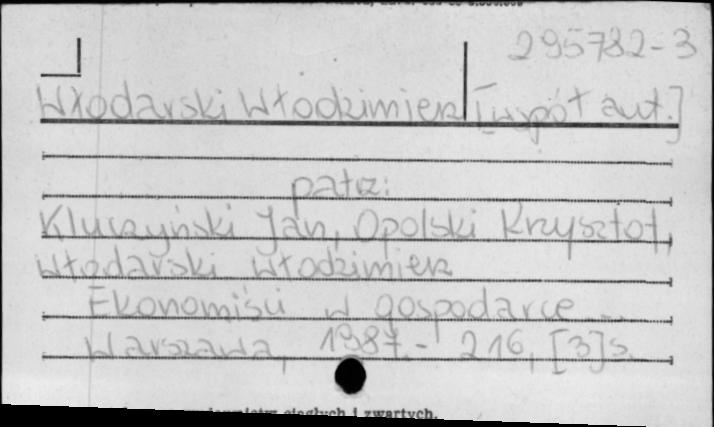 295782-3
Włodarski Włodzimierz [współaut.]
patrz:
Kluczyński Jan, Opolski Krzysztof,
Włodarski Włodzimierz
Ekonomiści w gospodarce ...
Warszawa, 1987.- 216, [3]s.
ciągłych i zwartych.